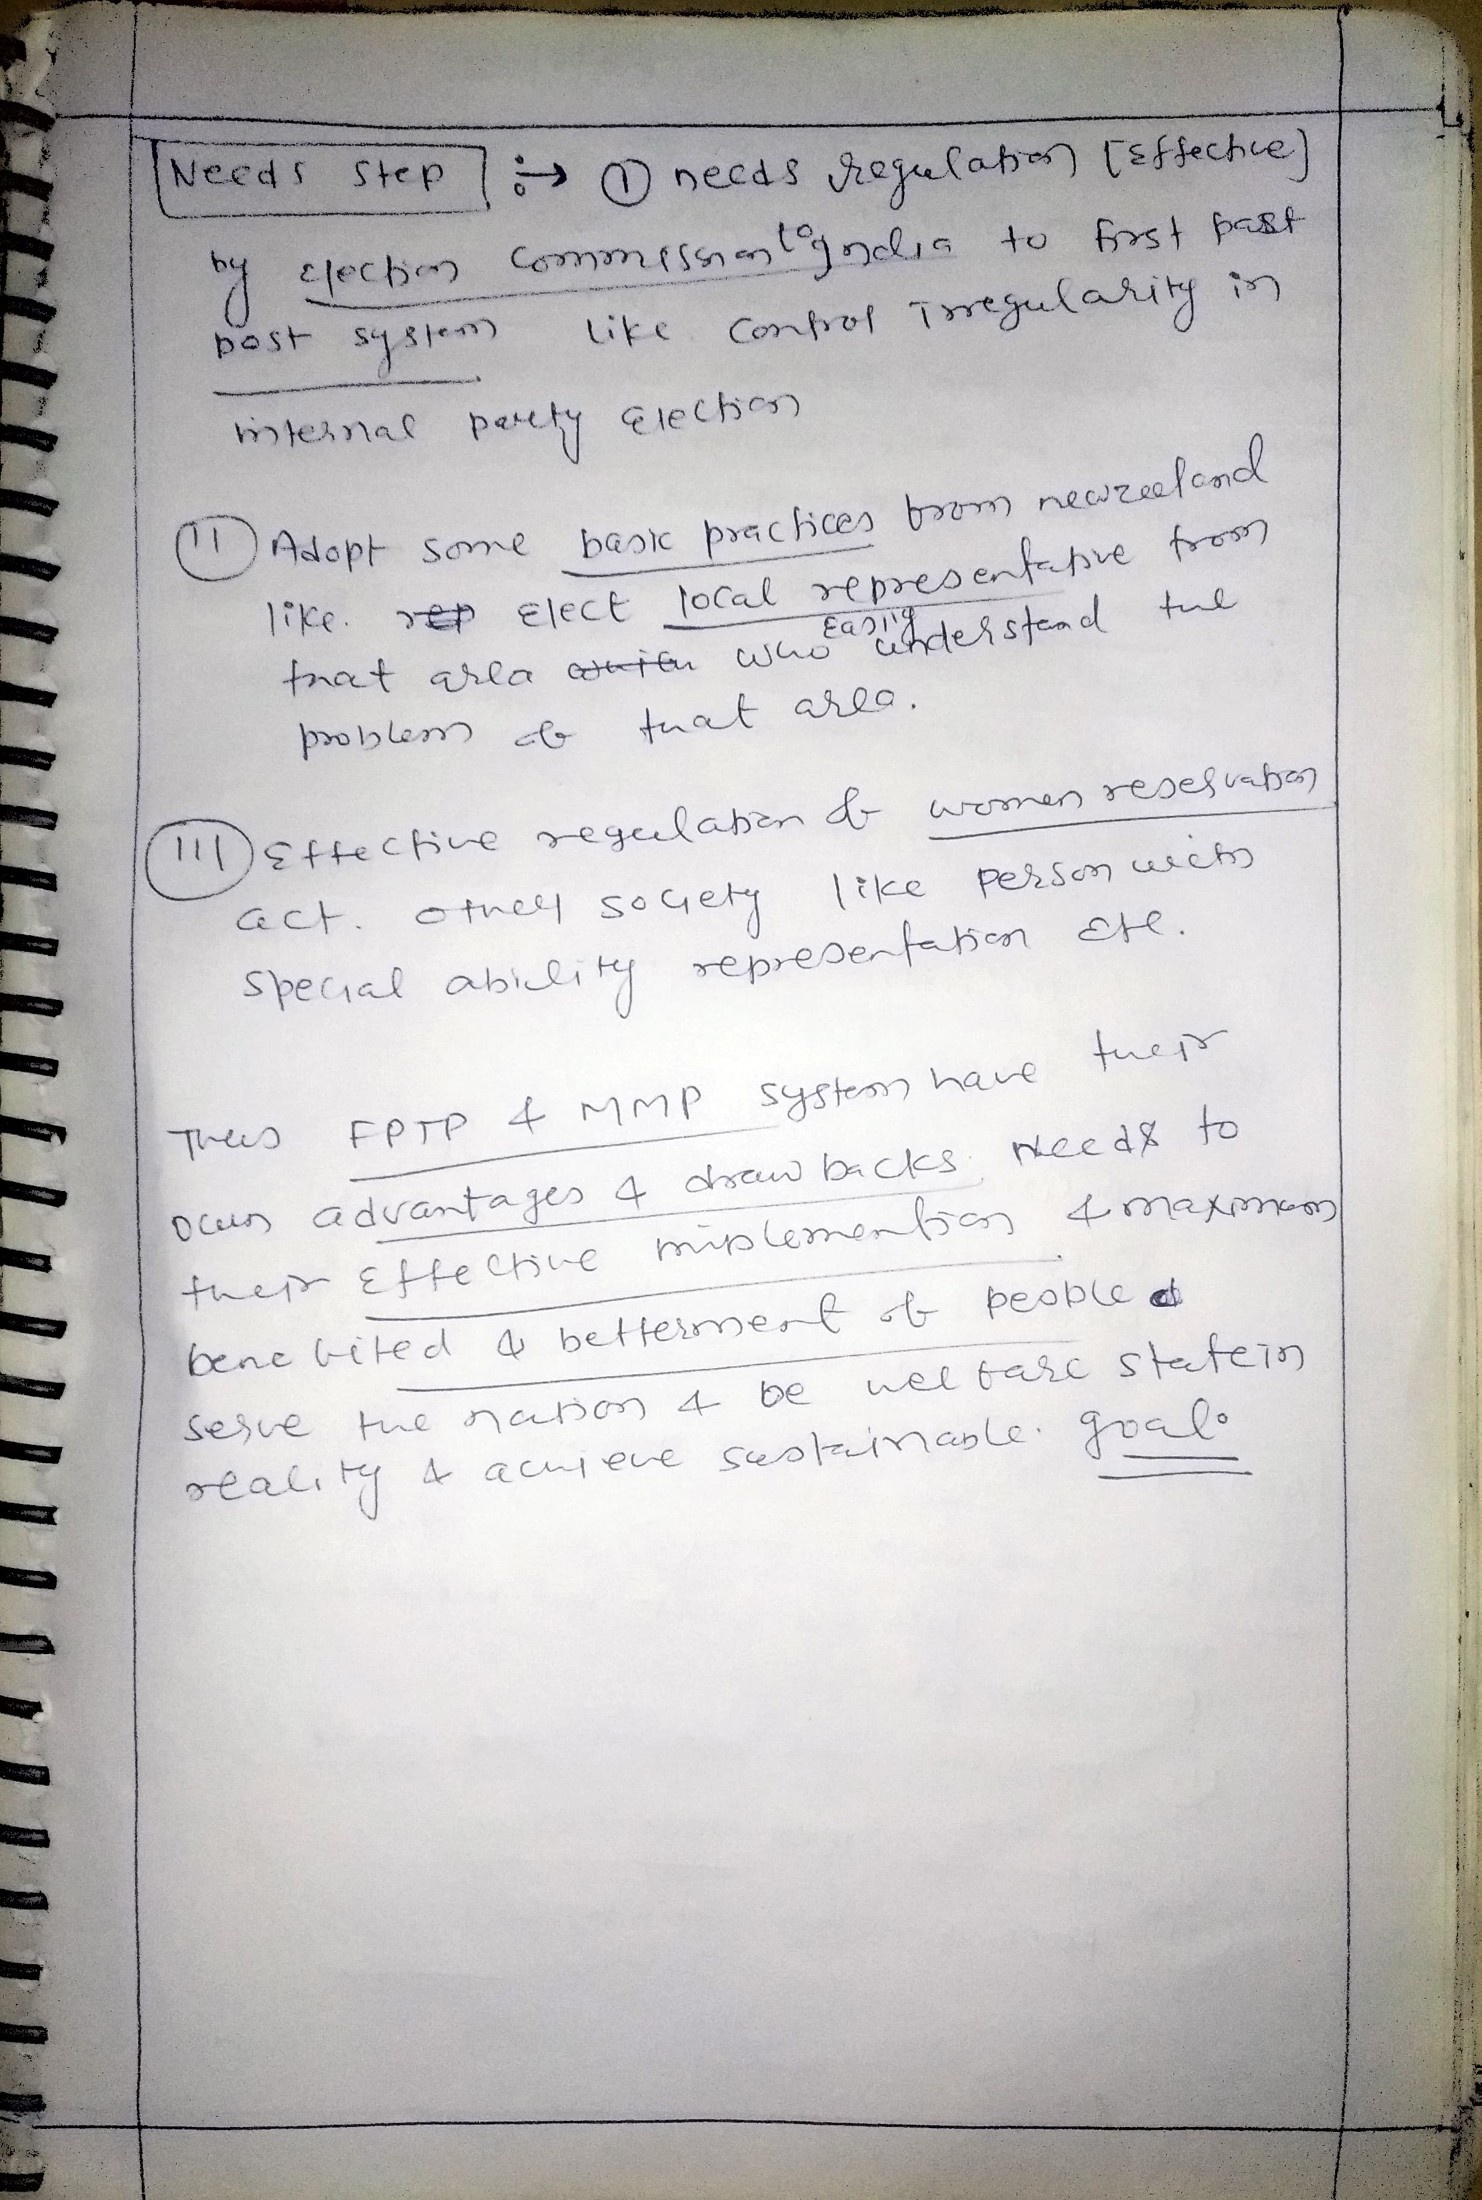 Needs Step :→ ① needs regulation [Effective]
by election commission of India to first past
post system like control irregularity in
internal party election
(II) Adopt some basic practices from newzeeland
like. rep elect local representative from
that area who easily understand the
problem of that area.
(III) Effective regulation of women reservation
act. other society like person with
special ability representation etc.
Thus FPTP & MMP system have their
own advantages & drawbacks. Needs to
their Effective implemention & maximum
benefited & betterment of people
serve the nation & be welfare state in
reality & achieve sustainable. goal.